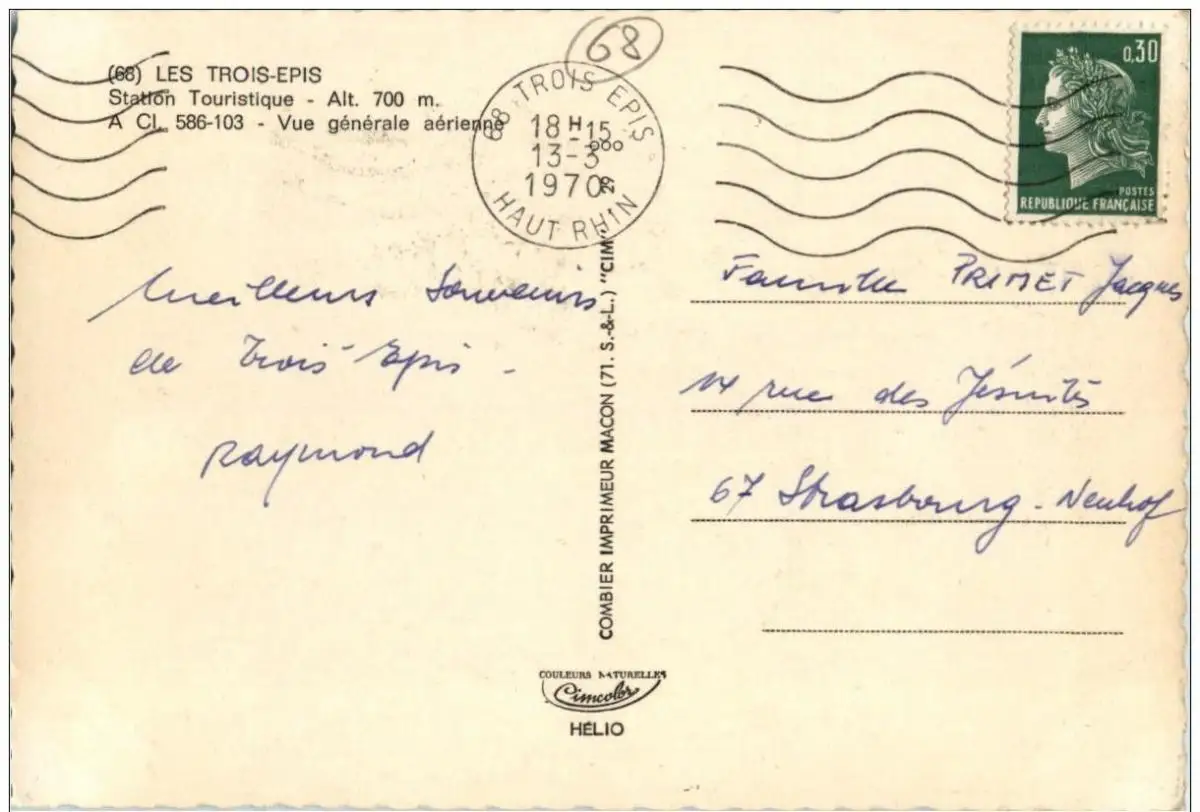 (68) LES TROIS-EPIS
Station Touristique - Alt. 700 m.
A CI. 586-103 - Vue générale aérienne
68
68 TROIS EPIS
18 H 15
13-3
1970
HAUT RHIN
0,30
POSTES
REPUBLIQUE FRANÇAISE
Meilleurs Souvenirs
de Trois Epis -
Raymond
COMBIER IMPRIMEUR MACON (71. S.-&-L.) "CIM"
Famille PRIMET Jacques
14 rue des Jésuites
67 Strasbourg - Neuhof
COULEURS NATURELLES
Cimcolor
HÉLIO